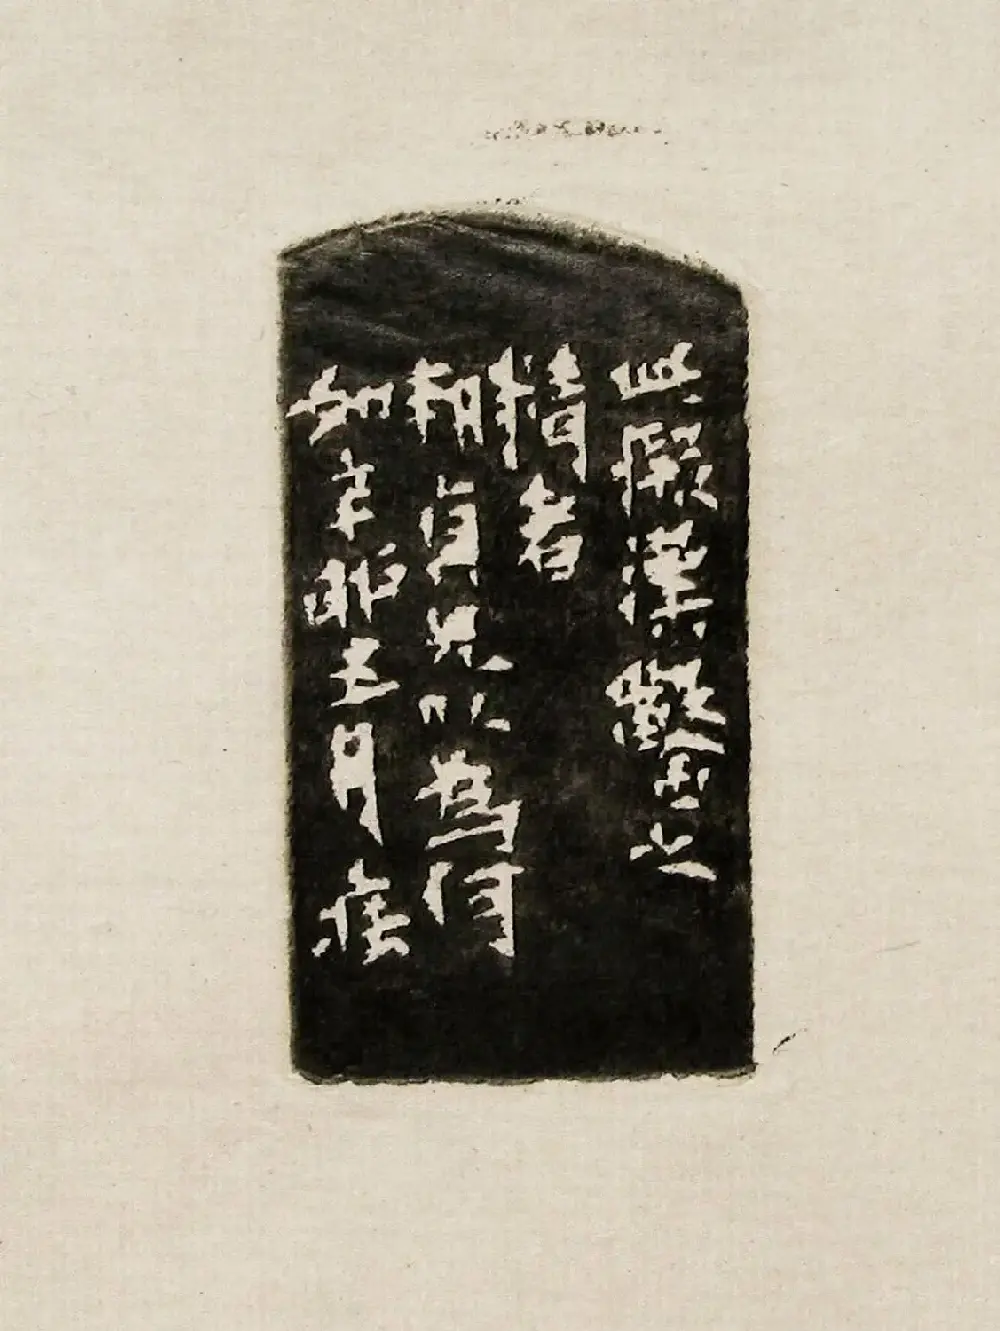 此漢鑿玉之
精者
貞兄以為何
如辛卯五月